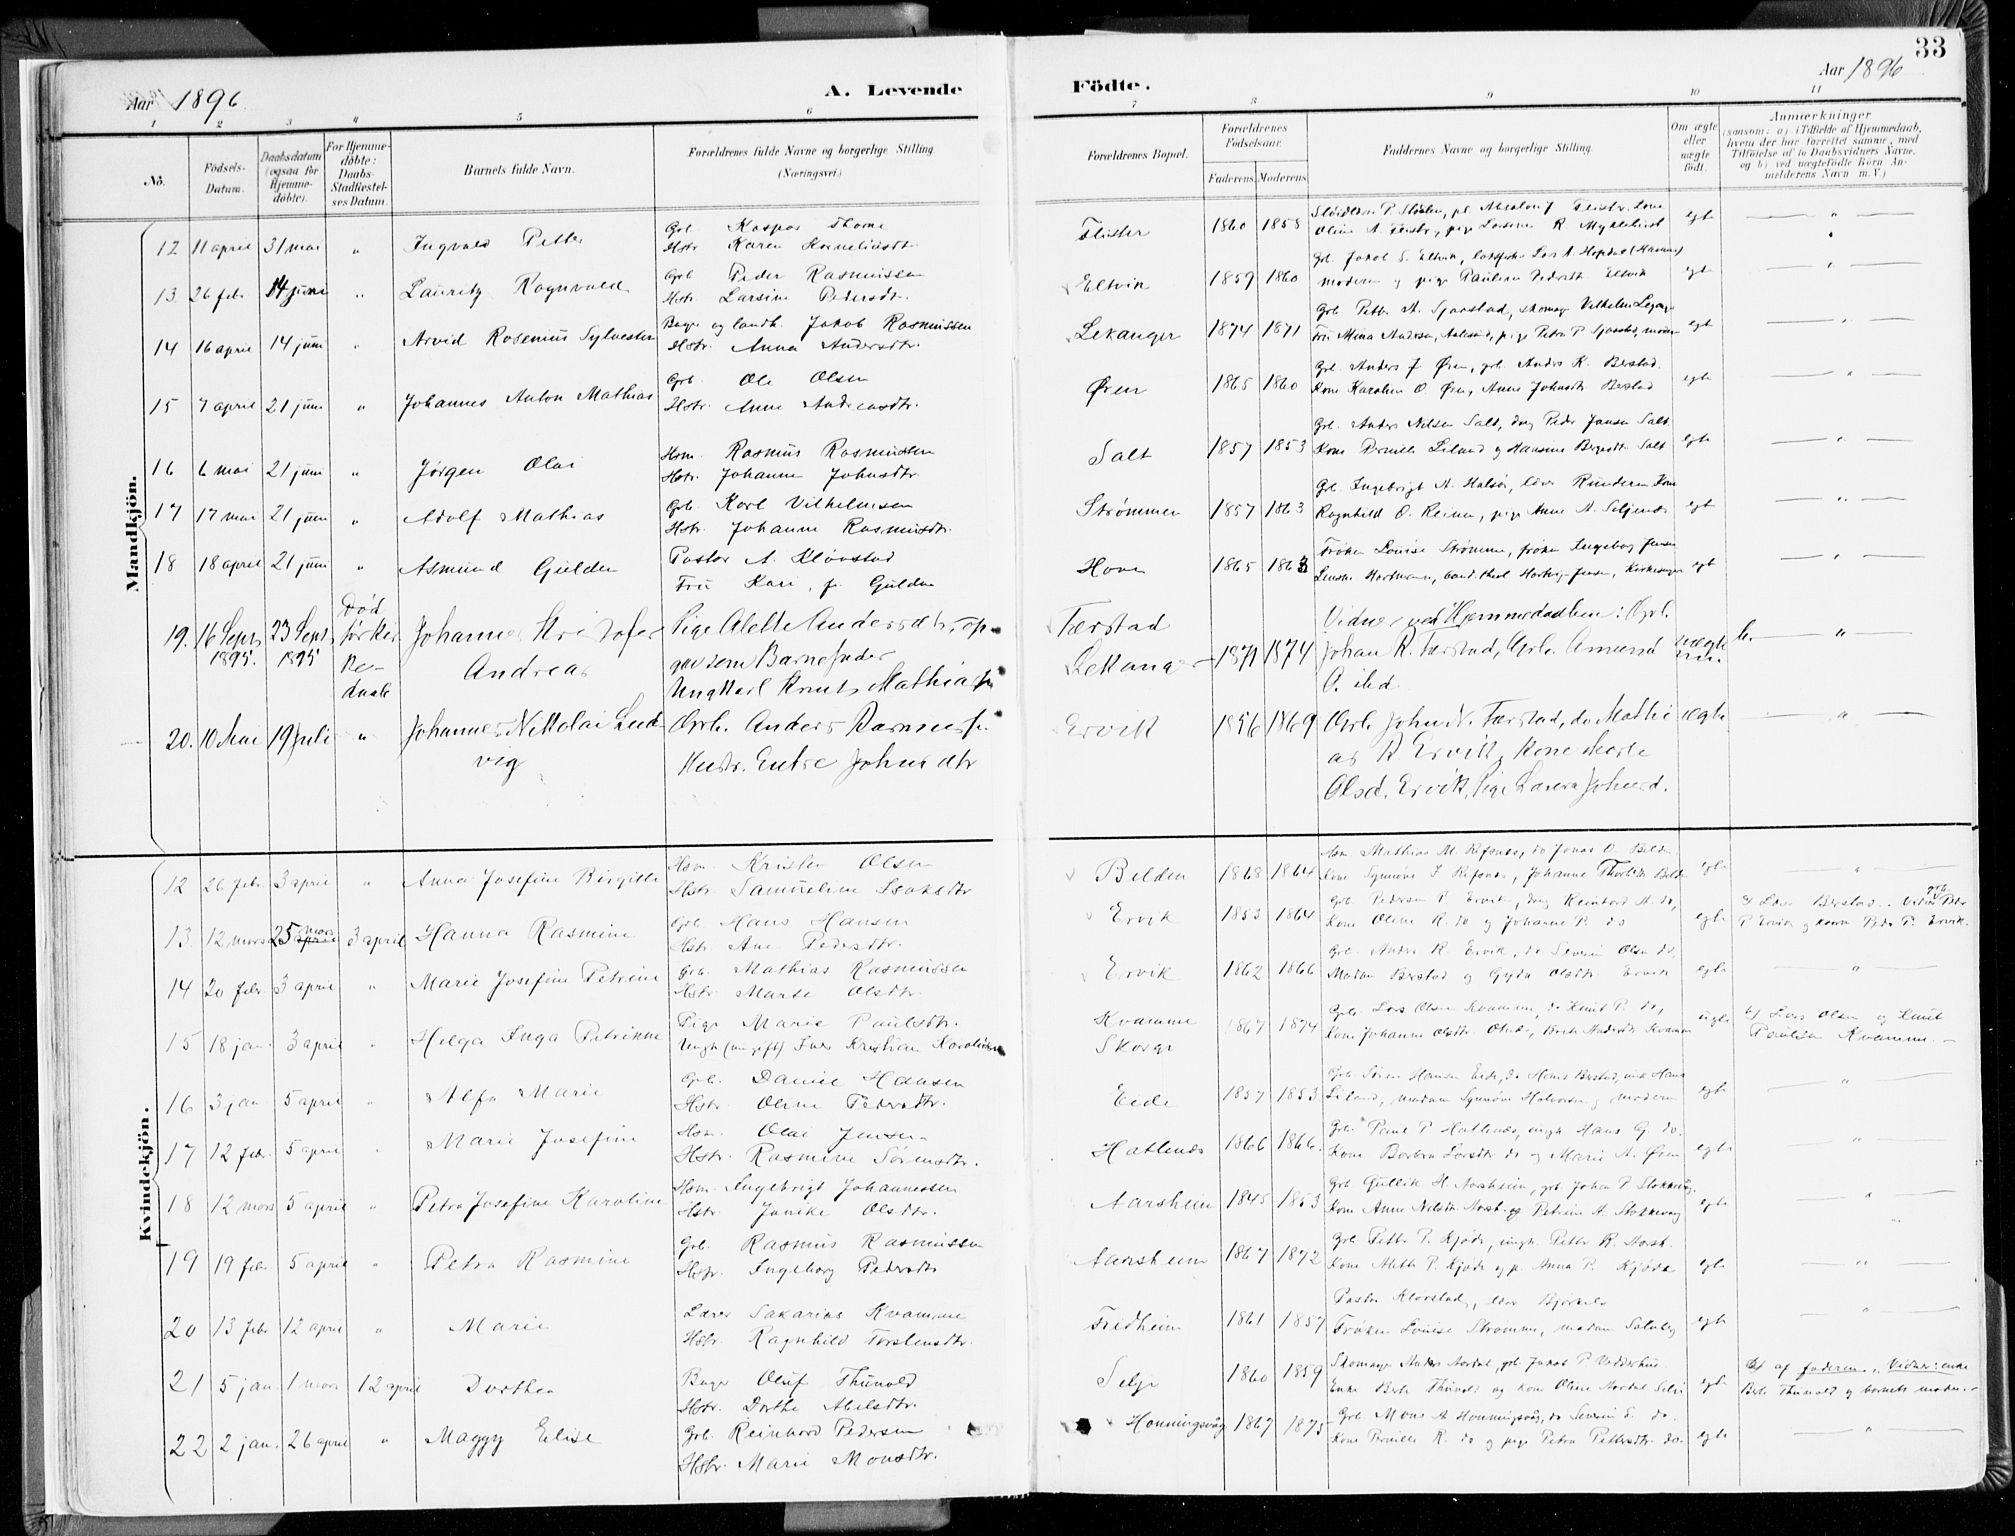 33
Aar 1896
A. Levende
Födte.
Aar 1896
1 2 3 4 5 6 7 8 9 10 11
No.
Födsels-Datum.
Daabsdatum (ogsaa for Hjemmedöbte).
For Hjemmedöbte: Daabs-Stadfæstelses Datum.
Barnets fulde Navn.
Forældrenes fulde Navne og borgerlige Stilling (Næringsvei.)
Forældrenes Bopæl.
Forældrenes Födselsaar.
Faderens. Moderens.
Faddernes Navne og borgerlige Stilling.
Om ægte eller uægte födt.
Anmærkninger
(saasom: a) i Tilfælde af Hjemmedaab,
hvem der har forrettet samme, med
Tilföielse af to Daabsvidners Navne,
og b) ved uægtefödte Börn Anmelderens Navn m. V.)
Mandkjön.
12 11 april 31 mai " Ingvald Petter
Grb. Kaspar Thorne
Hstr. Karen Korneliusdtr.
Flister 1860 1858 egte "
13. 26 febr 14 juni " Lauritz Ragnvald
Grb Peder Rasmussen
Hstr. Larsine Pedersdtr.
Eltvik 1859 1860
moderen og pige Pauline Pedersdt Eltvik egte "
14 16 april 14 juni " Arvid Rosenius Sylvester
Bager og landh. Jakob Rasmussen
Hstr. Anna Andersdtr.
Lekanger 1874 1871 egte "
15 7 april 21 juni " Johannes Anton Mathias
Grb. Ole Olsen
Hstr. Anne Andreasdtr.
Øren 1865 1860
Grb. Anders J Øren, grb. Anders K. Berstad.
Kone Karoline O. Øren, Anne Johnsdt Berstad egte "
16 6 mai 21 juni " Jørgen Olai
Hsm. Rasmus Rasmussen
Hstr. Johanne Johnsdtr.
Salt 1857 1853
Grb. Anders Nilsen Salt, dreng Peder Jensen Salt.
Kone Pernille Liland og Hansine Berntdt Salt egte "
17 17 mai 21 juni " Adolf Mathias
Grb. Karl Vilhelmsen
Hstr. Johanne Rasmusdtr.
Strømmen 1857 1863
Grb. Ingebrigt A. Halsør, lærer Runderein Kone
Ragnhild O. Reinen, pige Anne A. Seljenæs egte "
18 18 april 21 juni " Asmund Gulden
Pastor A. Kløvstad
Fru Kari, f. Gulden
Hove 1865 1863
Frøken Louise Strømme, frøken Ingeborg Jensen egte "
19. 16 Sept. 1895. 23 Sept 1895 Død før Kirkedaab Johannes Kristofer Andreas
Pige Alette Andersdtr, opgav som Barnefader
Ungkarl Knut Mathias
Færstad
Lekanger 1871 1874
Vidner ved Hjemmedaaben: Grb.
Johan R. Færstad, Grb. Amund
O. ibd uægte b. "
20. 10 Mai 19 Juli " Johannes Nikolai Ludvig
Grb. Anders Rasmus
Hustr. Entre Johnsdtr
Ervik 1856 1869
Grb. John N. Færstad, do Mathias
R. Ervik, Kone Marte
Olsd. Ervik, Pige Lasera Johnsd. ægte "
Kvindekjön.
12 26 febr. 3 april " Anna Josefine Birgitte
Hsm. Kristen Olsen
Hstr. Samueline Isaksdtr
Belden 1868 1864
Hsm Mathias M. Refsnæs, do Jonas O. Belden
Kone Synnøve J. Refsnæs, Johanne Belden egte "
13. 12 mars 25 mars 3 april Hanna Rasmine
Grb. Hans Hansen
Hstr. Ane Pedersdtr.
Ervik 1853 1864
Grb. Pedersen P. Ervik, dreng Reinhard A. do,
Kone Oline R. do og Johanne P. do egte
a) Lærer Berstad. Vidner grb. Peder
P Ervik og kone Peder P. Ervik.
14 20 febr. 3 april " Marie Josefine Petrine
Grb. Mathias Rasmussen
Hstr. Marte Olsdtr.
Ervik 1862 1866
Grb. Anders R. Ervik, do Severin Olsen do,
Madam Berstad og Gyda Olsdtr. Ervik egte "
15 18 jan. 3 april " Helga Inga Petrikke
Pige Marie Paulsdtr.
Ungk (ungift) Iver Kristian
Kvamme
Skorge 1867 1874
Grb. Lars Olsen Kvamme, do Knut P. do, uegte
b) Lars Olsen og Knut
Paulsen Kvamme.
16 3 jan 5 april " Alfa Marie
Grb. Daniel Hansen
Hstr. Oline Pedersdtr.
Eide 1857 1853
Grb. Søren Hansen Eide, do Hans Berstad
Liland, madam Synnøve Halvorsen og moderen egte "
17 12 febr. 5 april " Marie Josefine
Hsm. Olai Jensen
Hstr. Rasmine Sørensdtr.
Hatlenæs 1866 1866.
Grb. Paul P Hatlenæs, ungk Hans G. do.
Kone Barbra Larsdtr do og Marie A. Øren egte "
18 12 mars 5 april " Petra Josefine Karoline
Hsm. Ingebrigt Johannessen
Hstr. Janike Olsdtr.
Aarsheim 1845 1853
Grb Gullik H Aarsheim, grb Johan P Stokkevåg.
Kone Anne Nilsdtr Aarsh. og Petrine A. Stokkevåg egte "
19 19 febr. 5 april " Petra Rasmine
Grb. Rasmus Rasmussen
Hstr. Ingeborg Pedersdtr
Aarsheim 1867 1872
Grb Petter P. Kjøde, ungk. Petter R. Aarsh.
Kone Alette P. Kjøde og p. Anna P. Kjøde egte "
20 13 febr 12 april " Marie
Lærer Sakarias Kvamme
Hstr. Ragnhild Torstensdtr.
Fridheim 1861 1857
Pastor Kløvstad, lærer
Frøken Louise Strømme, madam egte "
21 5 jan 1 mars 12 april Dorthea
Bager Oluf Thunold
Hstr. Dorthe Abelsdtr.
Selje 1860 1859
Skomager Anders Aardal, grb. Jakob P.
Enke Berte Thunold og kone Oline Aardal Selje egte
a) af faderen. Vidner: enke
Berte Thunold og barnets moder.
22 2 jan. 26 april " Maggy Elise
Grb. Reinhard Pedersen
Hstr. Marie Monsdtr.
Honningsvåg 1867 1875
Grb Mons A Honningsvåg, do Severin S. do.
Kone Pernille R. do og pige Petra Pettersdtr. do. egte "